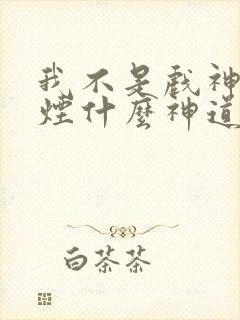 我不是戲神
煙什麼神道
白茶茶